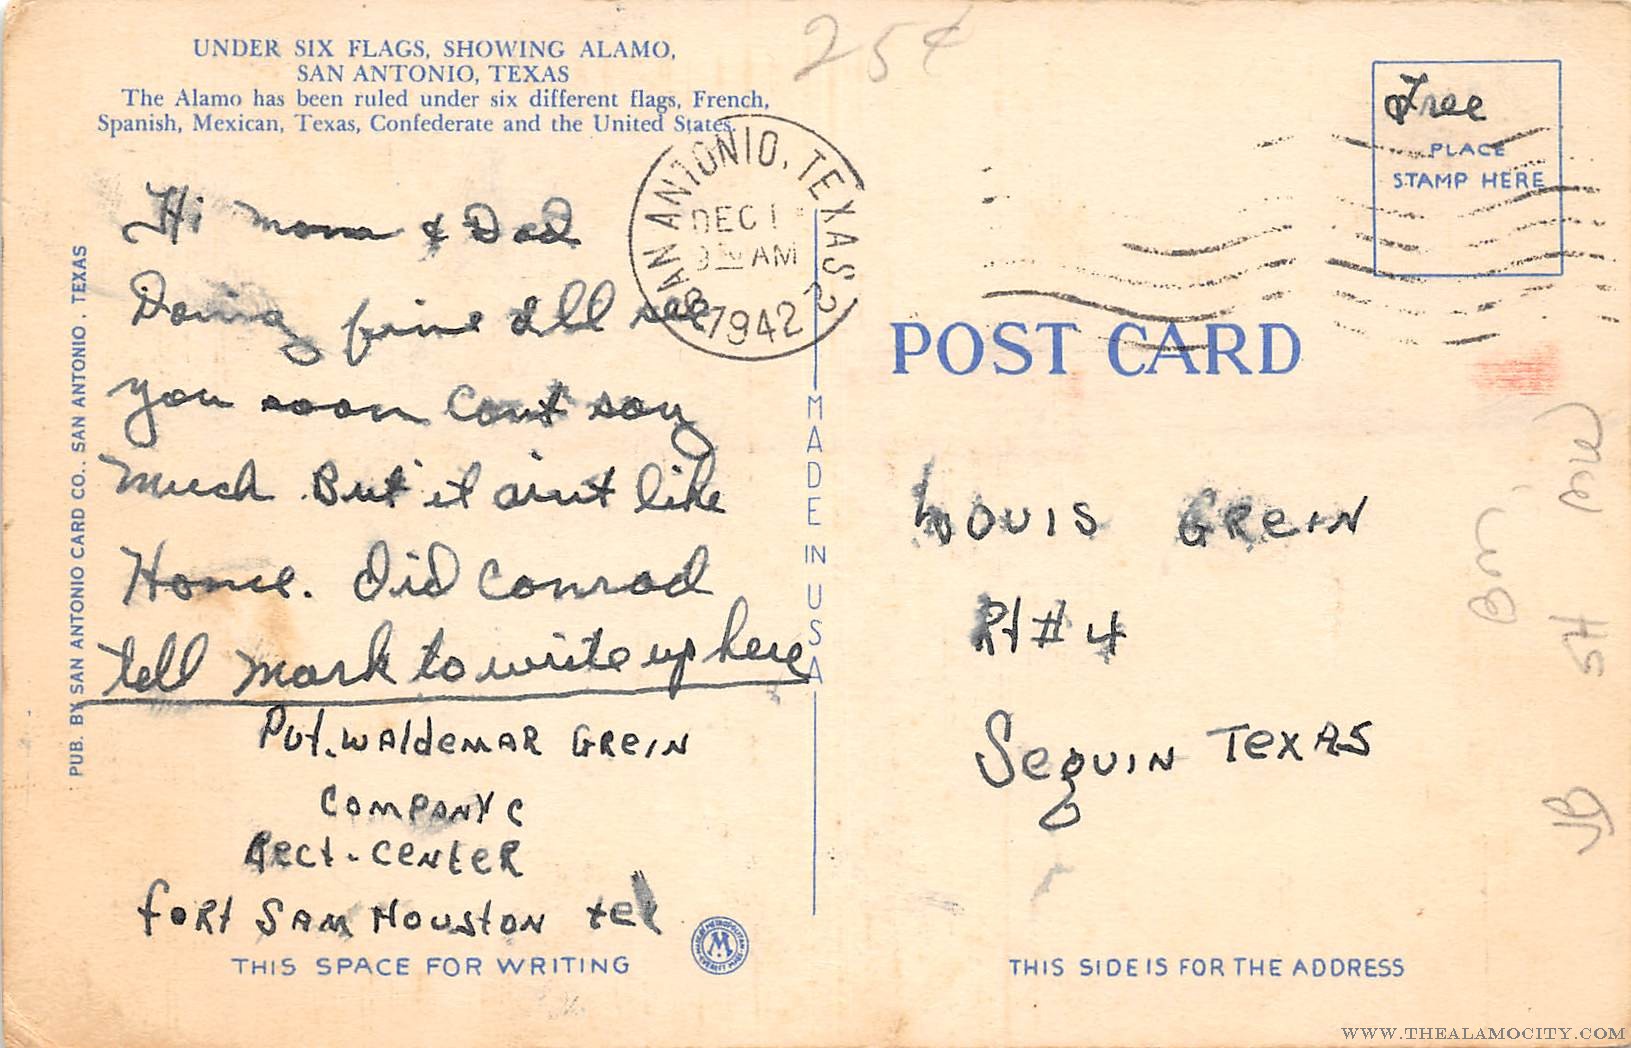 UNDER SIX FLAGS, SHOWING ALAMO,
SAN ANTONIO, TEXAS
The Alamo has been ruled under six different flags, French,
Spanish, Mexican, Texas, Confederate and the United States.
25¢
Free
PLACE
STAMP HERE
SAN ANTONIO, TEXAS 2
DEC 1
AM
1942
Hi mom & Dad
Doing fine Ill see
you soon cant say
much But it aint like
Home. Did Conrad
tell mark to write up here
Pvt. WAldemAR GReIN
COMPANY C
Rect. CeNteR
foRt SAM HOUStON tex
THIS SPACE FOR WRITING
PUB. BY SAN ANTONIO CARD CO., SAN ANTONIO, TEXAS
MADE IN USA
POST CARD
LOUIS GReIN
Rt # 4
SeguIN TexAS
THIS SIDE IS FOR THE ADDRESS
M
WWW.THEALAMOCITY.COM